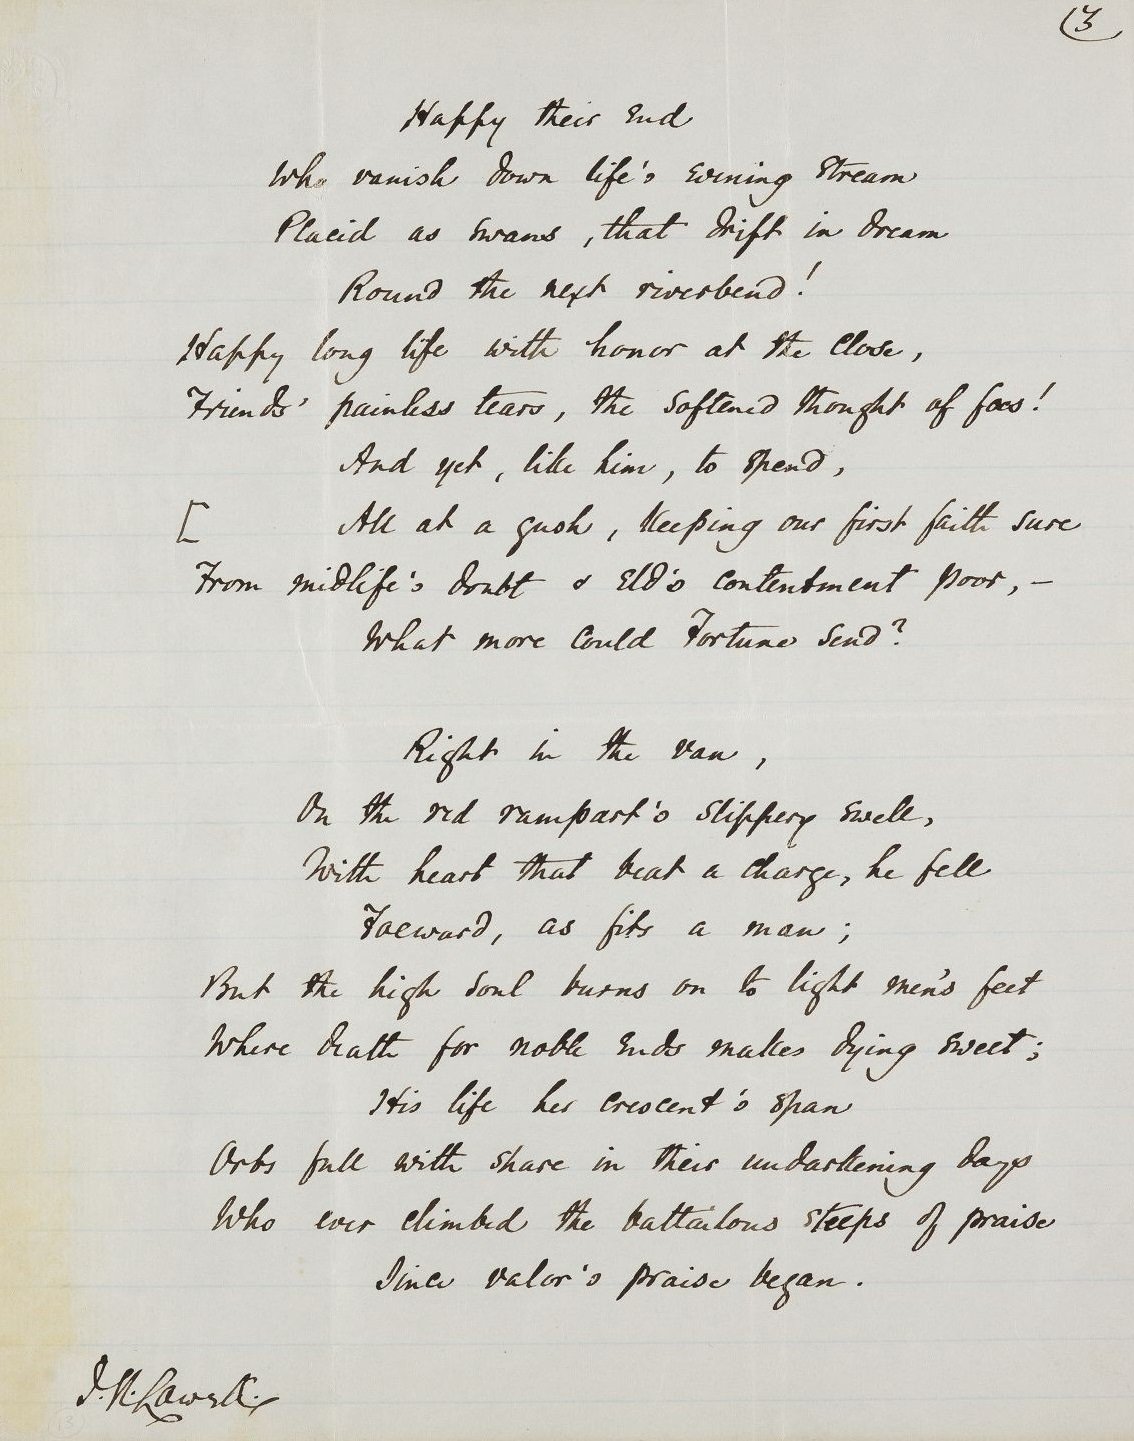 (3
Happy their end
Who vanish down life's evening stream
Placid as swans, that drift in dream
Round the next riverbend!
Happy long life with honor at the close,
Friends' painless tears, the softened thought of foes!
And yet, like him, to spend,
[ All at a gush, keeping our first faith sure
From midlife's doubt & eld's contentment poor,—
What more could Fortune send?
Right in the van,
On the red rampart's slippery swell,
With heart that beat a charge, he fell
Foeward, as fits a man;
But the high soul burns on to light men's feet
Where death for noble ends makes dying sweet;
His life her crescent's span
Orbs full with share in their undarkening days
Who ever climbed the battailous steeps of praise
Since valor's praise began.
J. R. Lowell.